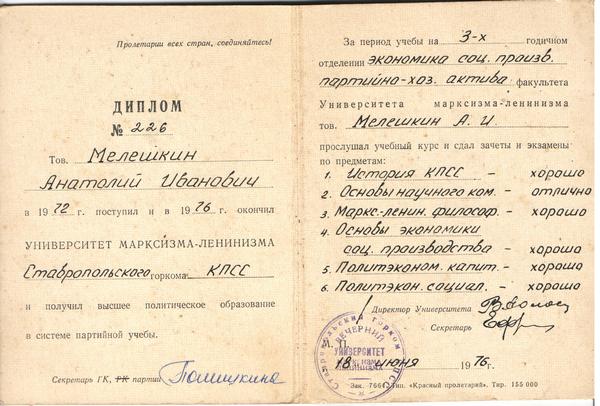 Пролетарии всех стран, соединяйтесь!
ДИПЛОМ
№ 226
Тов. Мелешкин
Анатолий Иванович
в 1972 г. поступил и в 1976 г. окончил
УНИВЕРСИТЕТ МАРКСИЗМА-ЛЕНИНИЗМА
Ставропольского горкома КПСС
и получил высшее политическое образование
в системе партийной учебы.
Секретарь ГК, РК партии
За период учебы на 3-х годичном
отделении экономика соц. произв.
партийно-хоз. актива факультета
Университета марксизма-ленинизма
тов. Мелешкин А. И.
прослушал учебный курс и сдал зачеты и экзамены
по предметам:
1. История КПСС - хорошо
2. Основы научного ком. - отлично
3. Маркс.-ленин. философ. - хорошо
4. Основы экономики
соц. производства - хорошо
5. Политэконом. капит. - хорошо
6. Политэкон. социал. - хорошо
Директор Университета
Секретарь
М. П.
ВЕЧЕРНИЙ
УНИВЕРСИТЕТ
18 июня 1976 г.
Зак. 766 Тип. «Красный пролетарий». Тир. 155 000